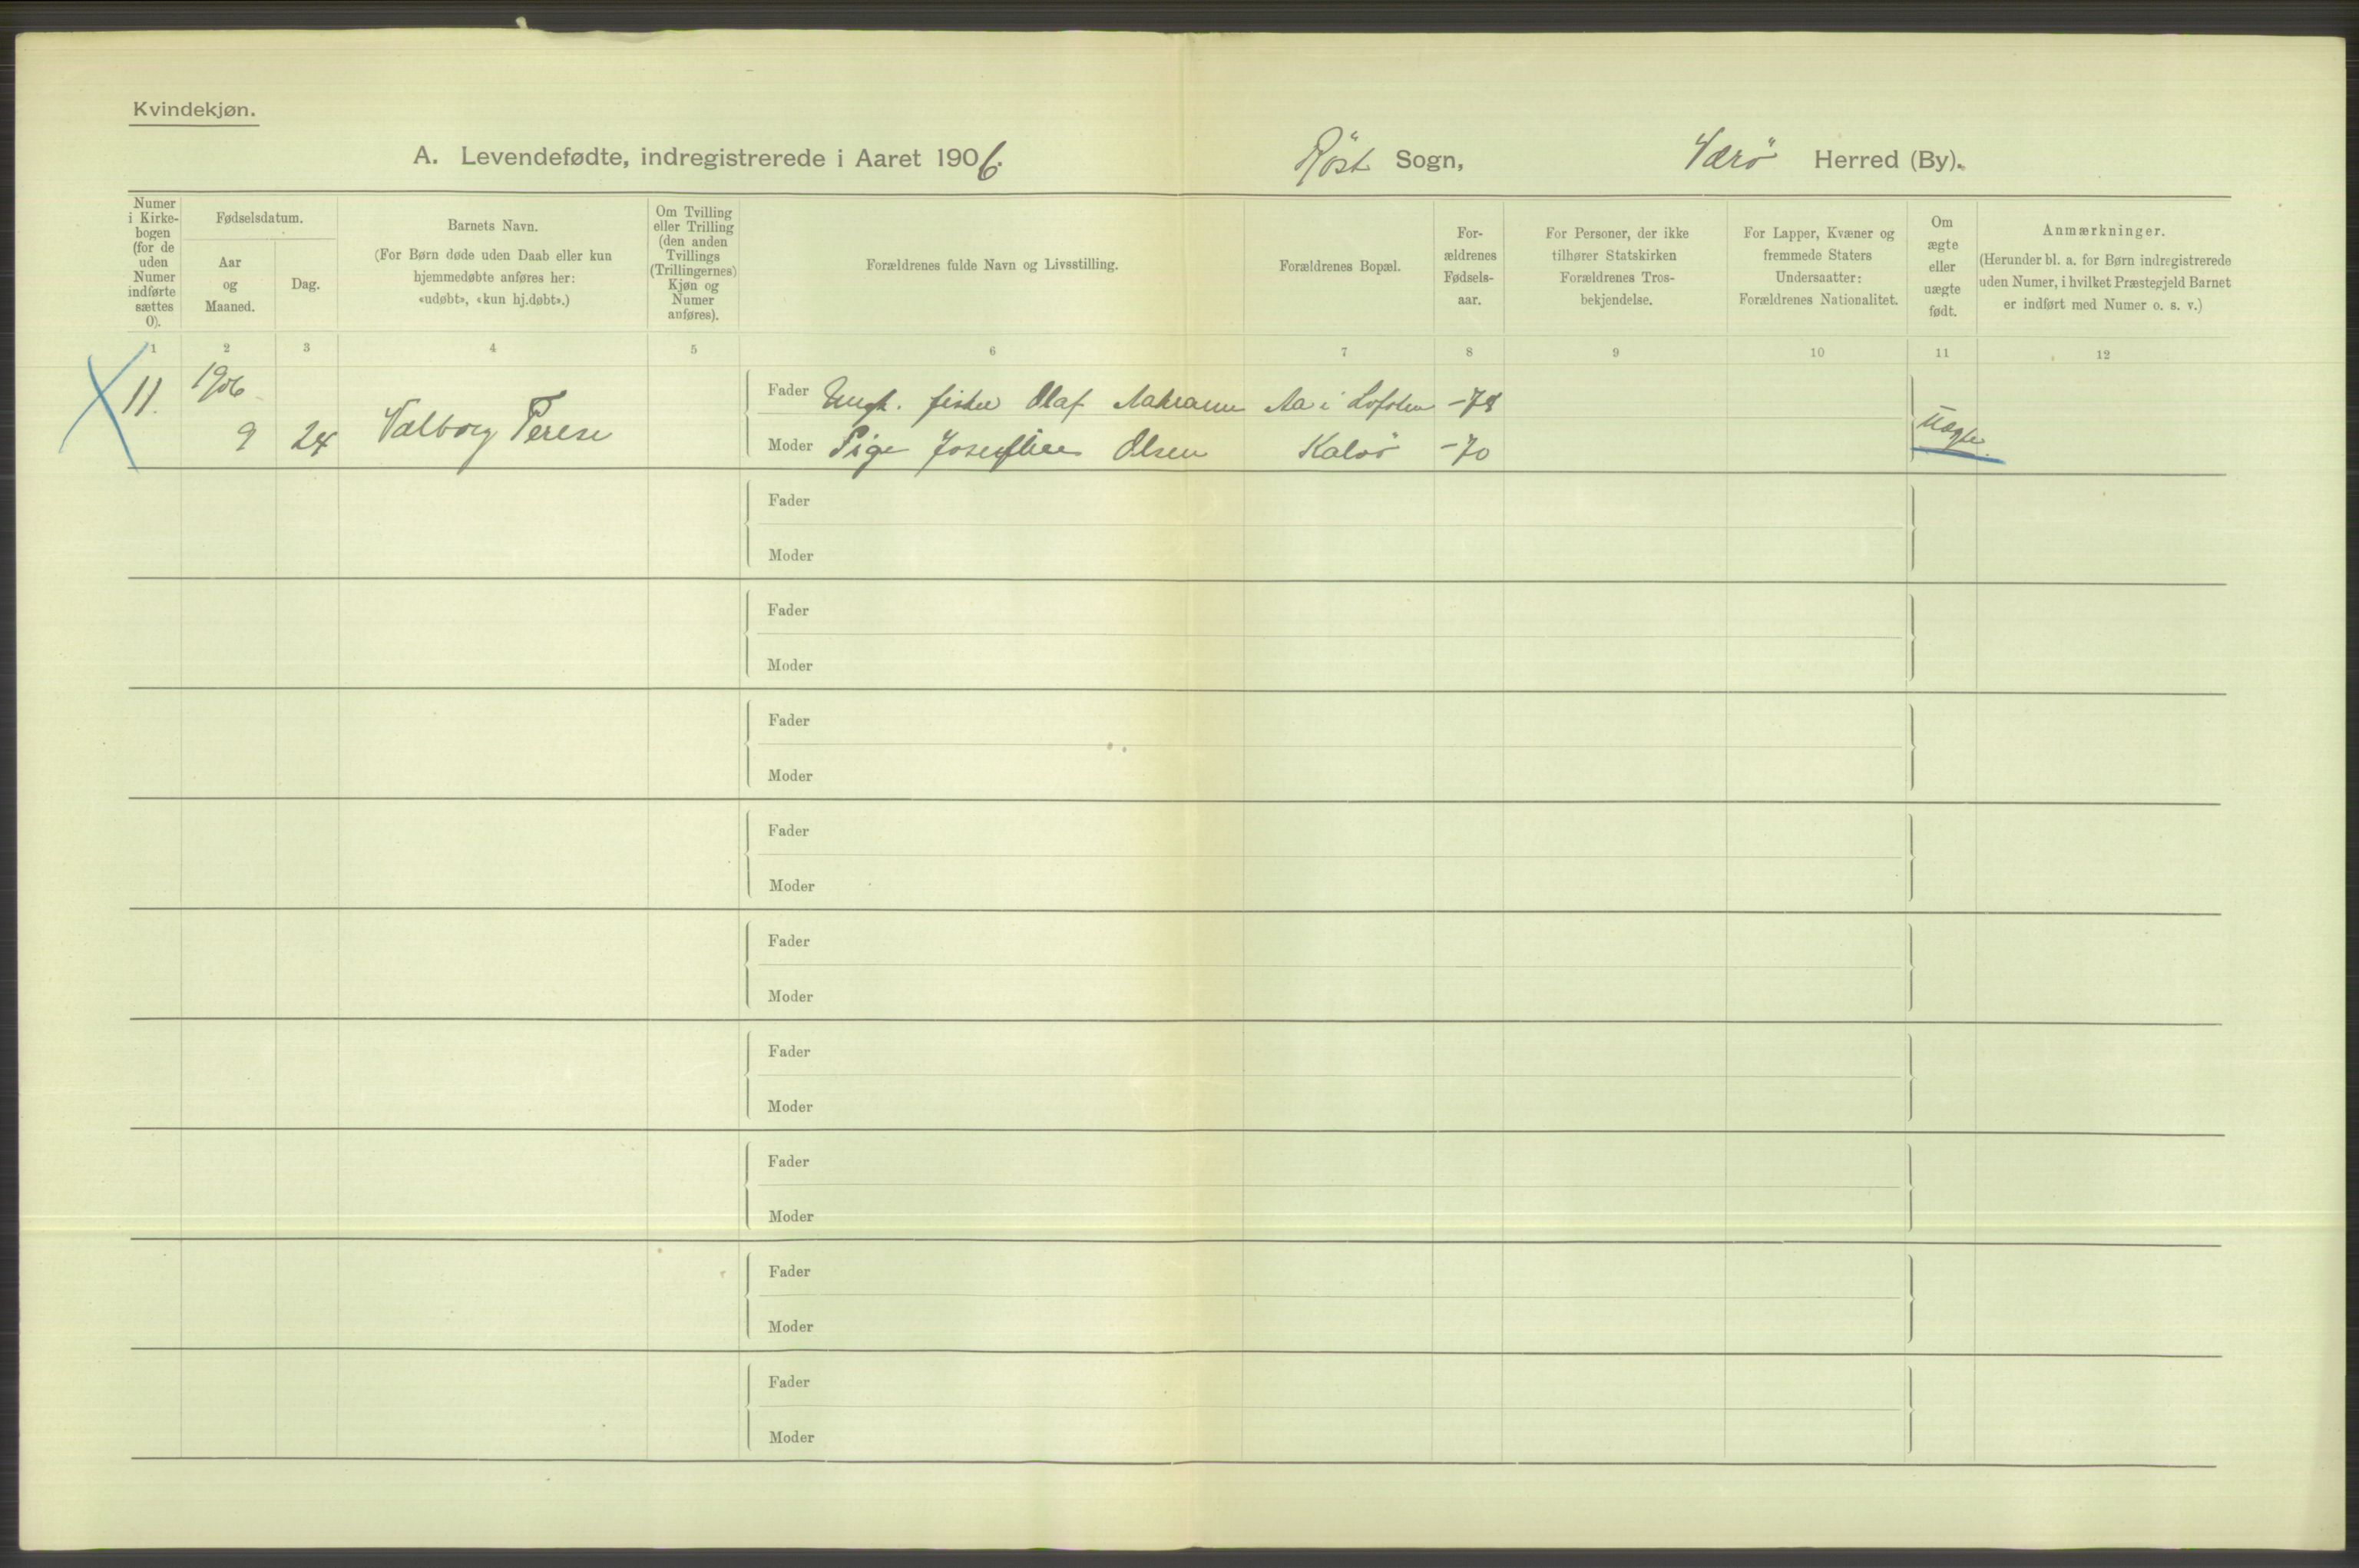 Kvindekjøn.
A. Levendefødte, indregistrerede i Aaret 1906. Röst Sogn, Værö Herred (By).
Numer i Kirke-bogen (for de uden Numer indførte sættes 0).
Fødselsdatum.
Aar og Maaned.
Dag.
Barnets Navn.
(For Børn døde uden Daab eller kun hjemmedøbte anføres her: «udøbt», «kun hj.døbt».)
Om Tvilling eller Trilling (den anden Tvillings (Trillingernes) Kjøn og Numer anføres).
Forældrenes fulde Navn og Livsstilling.
Forældrenes Bopæl.
For-ældrenes Fødsels-aar.
For Personer, der ikke tilhører Statskirken Forældrenes Tros-bekjendelse.
For Lapper, Kvæner og fremmede Staters Undersaatter: Forældrenes Nationalitet.
Om ægte eller uægte født.
Anmærkninger.
(Herunder bl. a. for Børn indregistrerede uden Numer, i hvilket Præstegjeld Barnet er indført med Numer o. s. v.)
1 2 3 4 5 6 7 8 9 10 11 12
11. 1906 Fader Ungk. fisker Olaf Aa i Lofoten -78
9 24 Valborg Terese Moder Pige Olsen Kalvö -70 Uægte
Fader
Moder
Fader
Moder
Fader
Moder
Fader
Moder
Fader
Moder
Fader
Moder
Fader
Moder
Fader
Moder
Fader
Moder